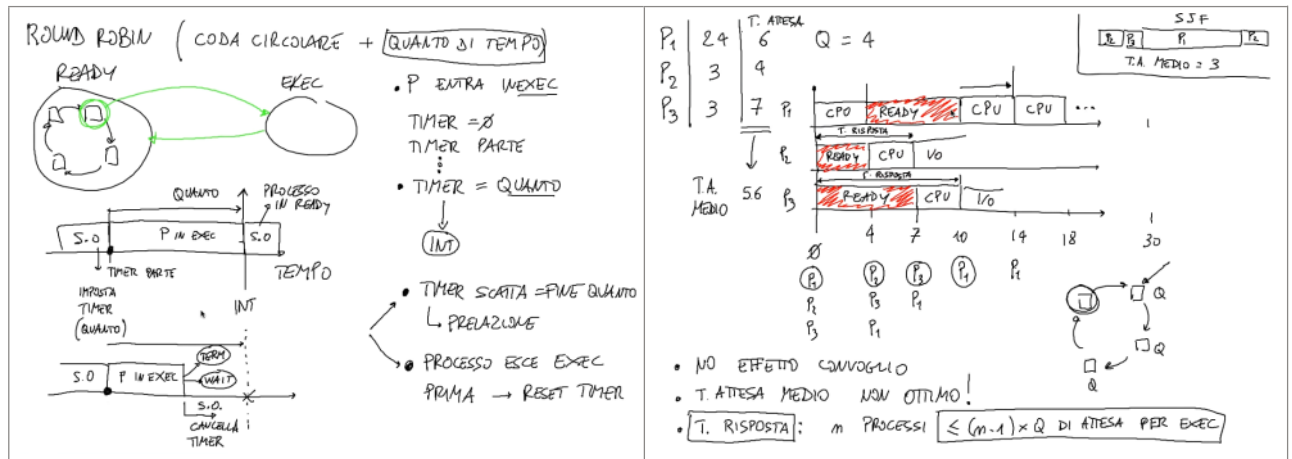 ROUND ROBIN ( CODA CIRCOLARE + QUANTO DI TEMPO)
READY
EXEC
• P ENTRA IN EXEC
TIMER = Ø
TIMER PARTE
• TIMER = QUANTO
INT
QUANTO
PROCESSO IN READY
S.O
P IN EXEC
S.O
TIMER PARTE
TEMPO
IMPOSTA
TIMER
(QUANTO)
INT
• TIMER SCATTA = FINE QUANTO
PRELAZIONE
• PROCESSO ESCE EXEC
PRIMA → RESET TIMER
TERM
S.O
P IN EXEC
WAIT
S.O.
CANCELLA
TIMER
T. ATTESA
P1 24 6
P2 3 4
P3 3 7
T.A.
MEDIO 5.6
Q = 4
SJF
P2 P3 P1 P2
T.A. MEDIO = 3
P1 CPU READY CPU CPU ...
T. RISPOSTA
P2 READY CPU I/O
T. RISPOSTA
P3 READY CPU I/O
Ø 4 7 10 14 18 30
P1 P2 P3 P1 P1
P2 P3 P1
P3 P1
Q
Q
Q
• NO EFFETTO CONVOGLIO
• T. ATTESA MEDIO NON OTTIMO!
• T. RISPOSTA: n PROCESSI ≤ (n-1) × Q DI ATTESA PER EXEC